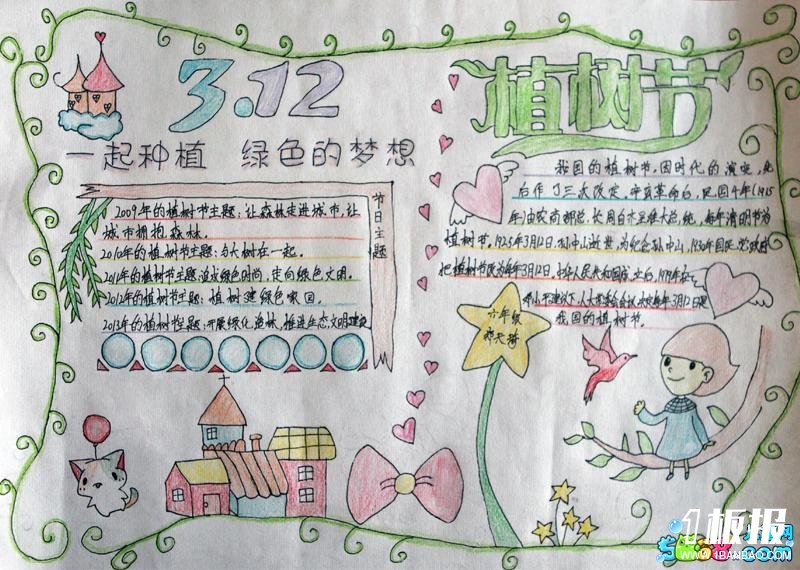 3.12
植树节
一起种植 绿色的梦想
节日主题
2009年的植树节主题：让森林走进城市，让
城市拥抱森林。
2010年的植树节主题：与大树在一起。
2011年的植树节主题：追求绿色时尚，走向绿色文明。
2012年的植树节主题：植树建绿色家园。
2013年的植树节主题：开展绿化造林，推进生态文明建设
我国的植树节，因时代的演变，先
后作了三次改定。辛亥革命后，民国4年(1915
年)由农商部总长周自齐呈准大总统，每年清明节为
植树节。1925年3月12日，孙中山逝世，为纪念孙中山，1930年国民党政府
把植树节改为每年3月12日。中华人民共和国成立后，1979年在
邓小平建议下，人大常委会决定每年3月12日是
我国的植树节。
六年级
板报网
WWW.1BANBAO.COM